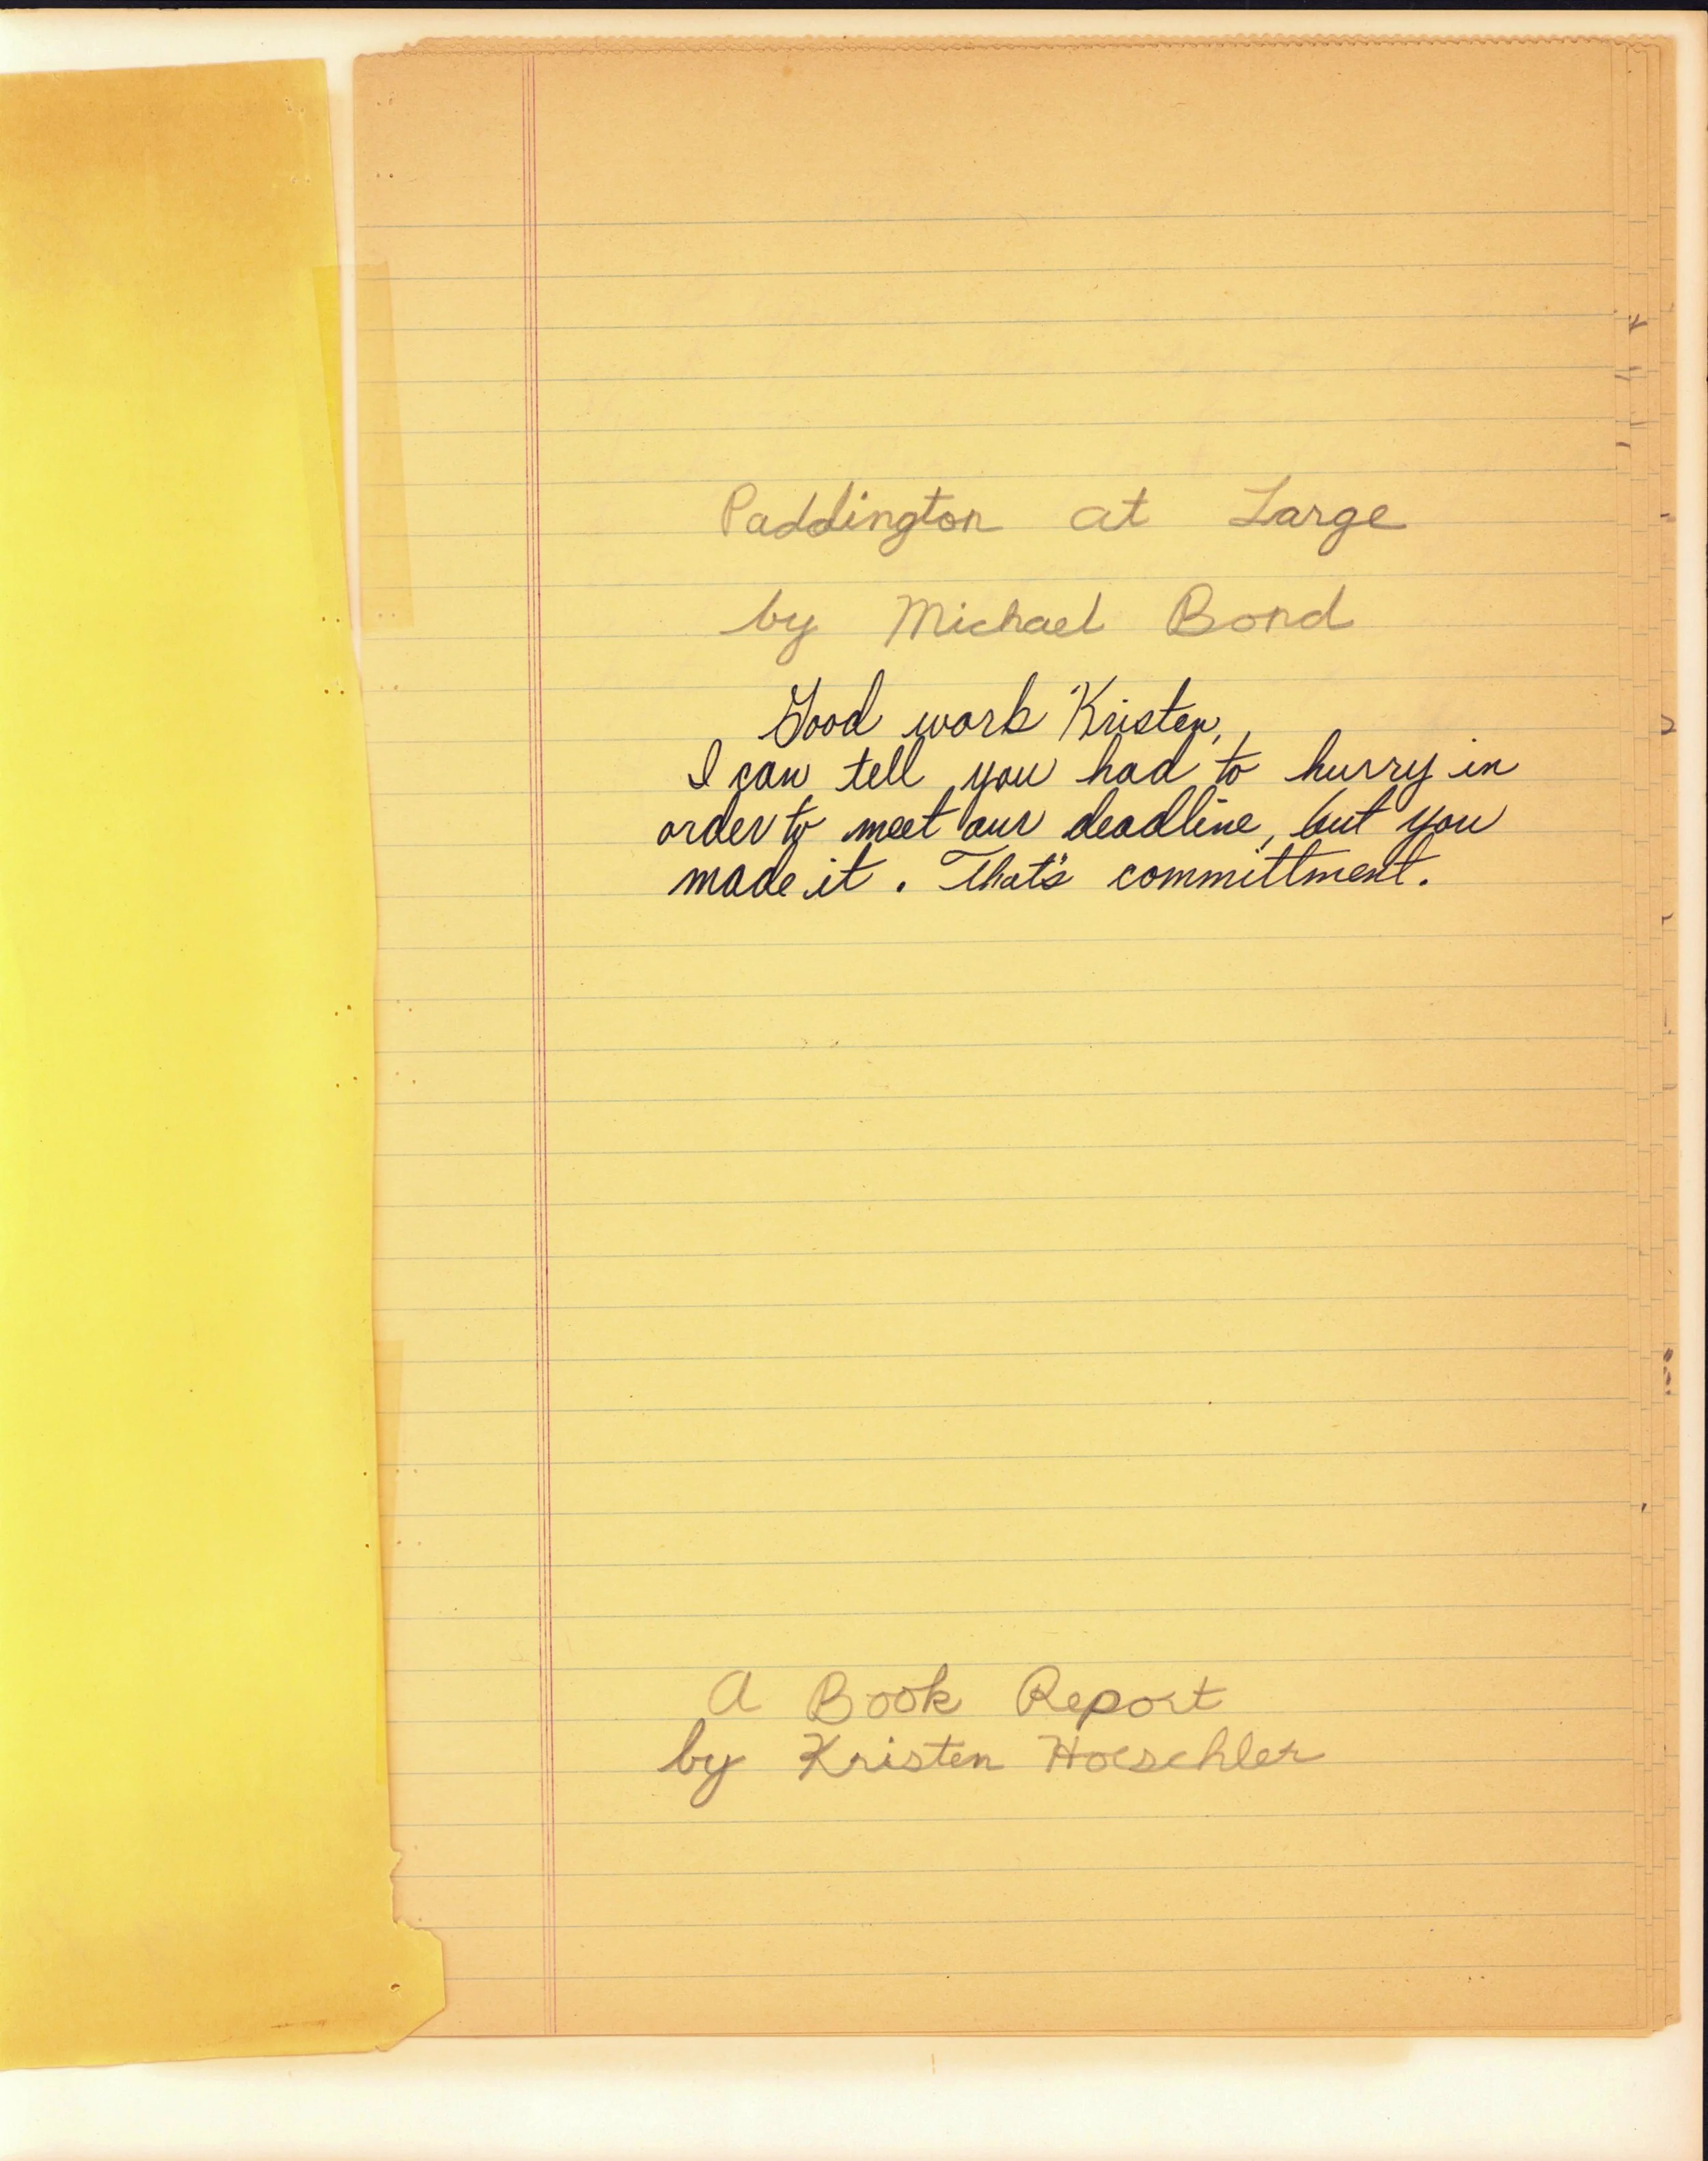 Paddington at Large
by Michael Bond
Good work Kristen,
I can tell you had to hurry in
order to meet our deadline, but you
made it. That's committment.
A Book Report
by Kristen Hoeschler